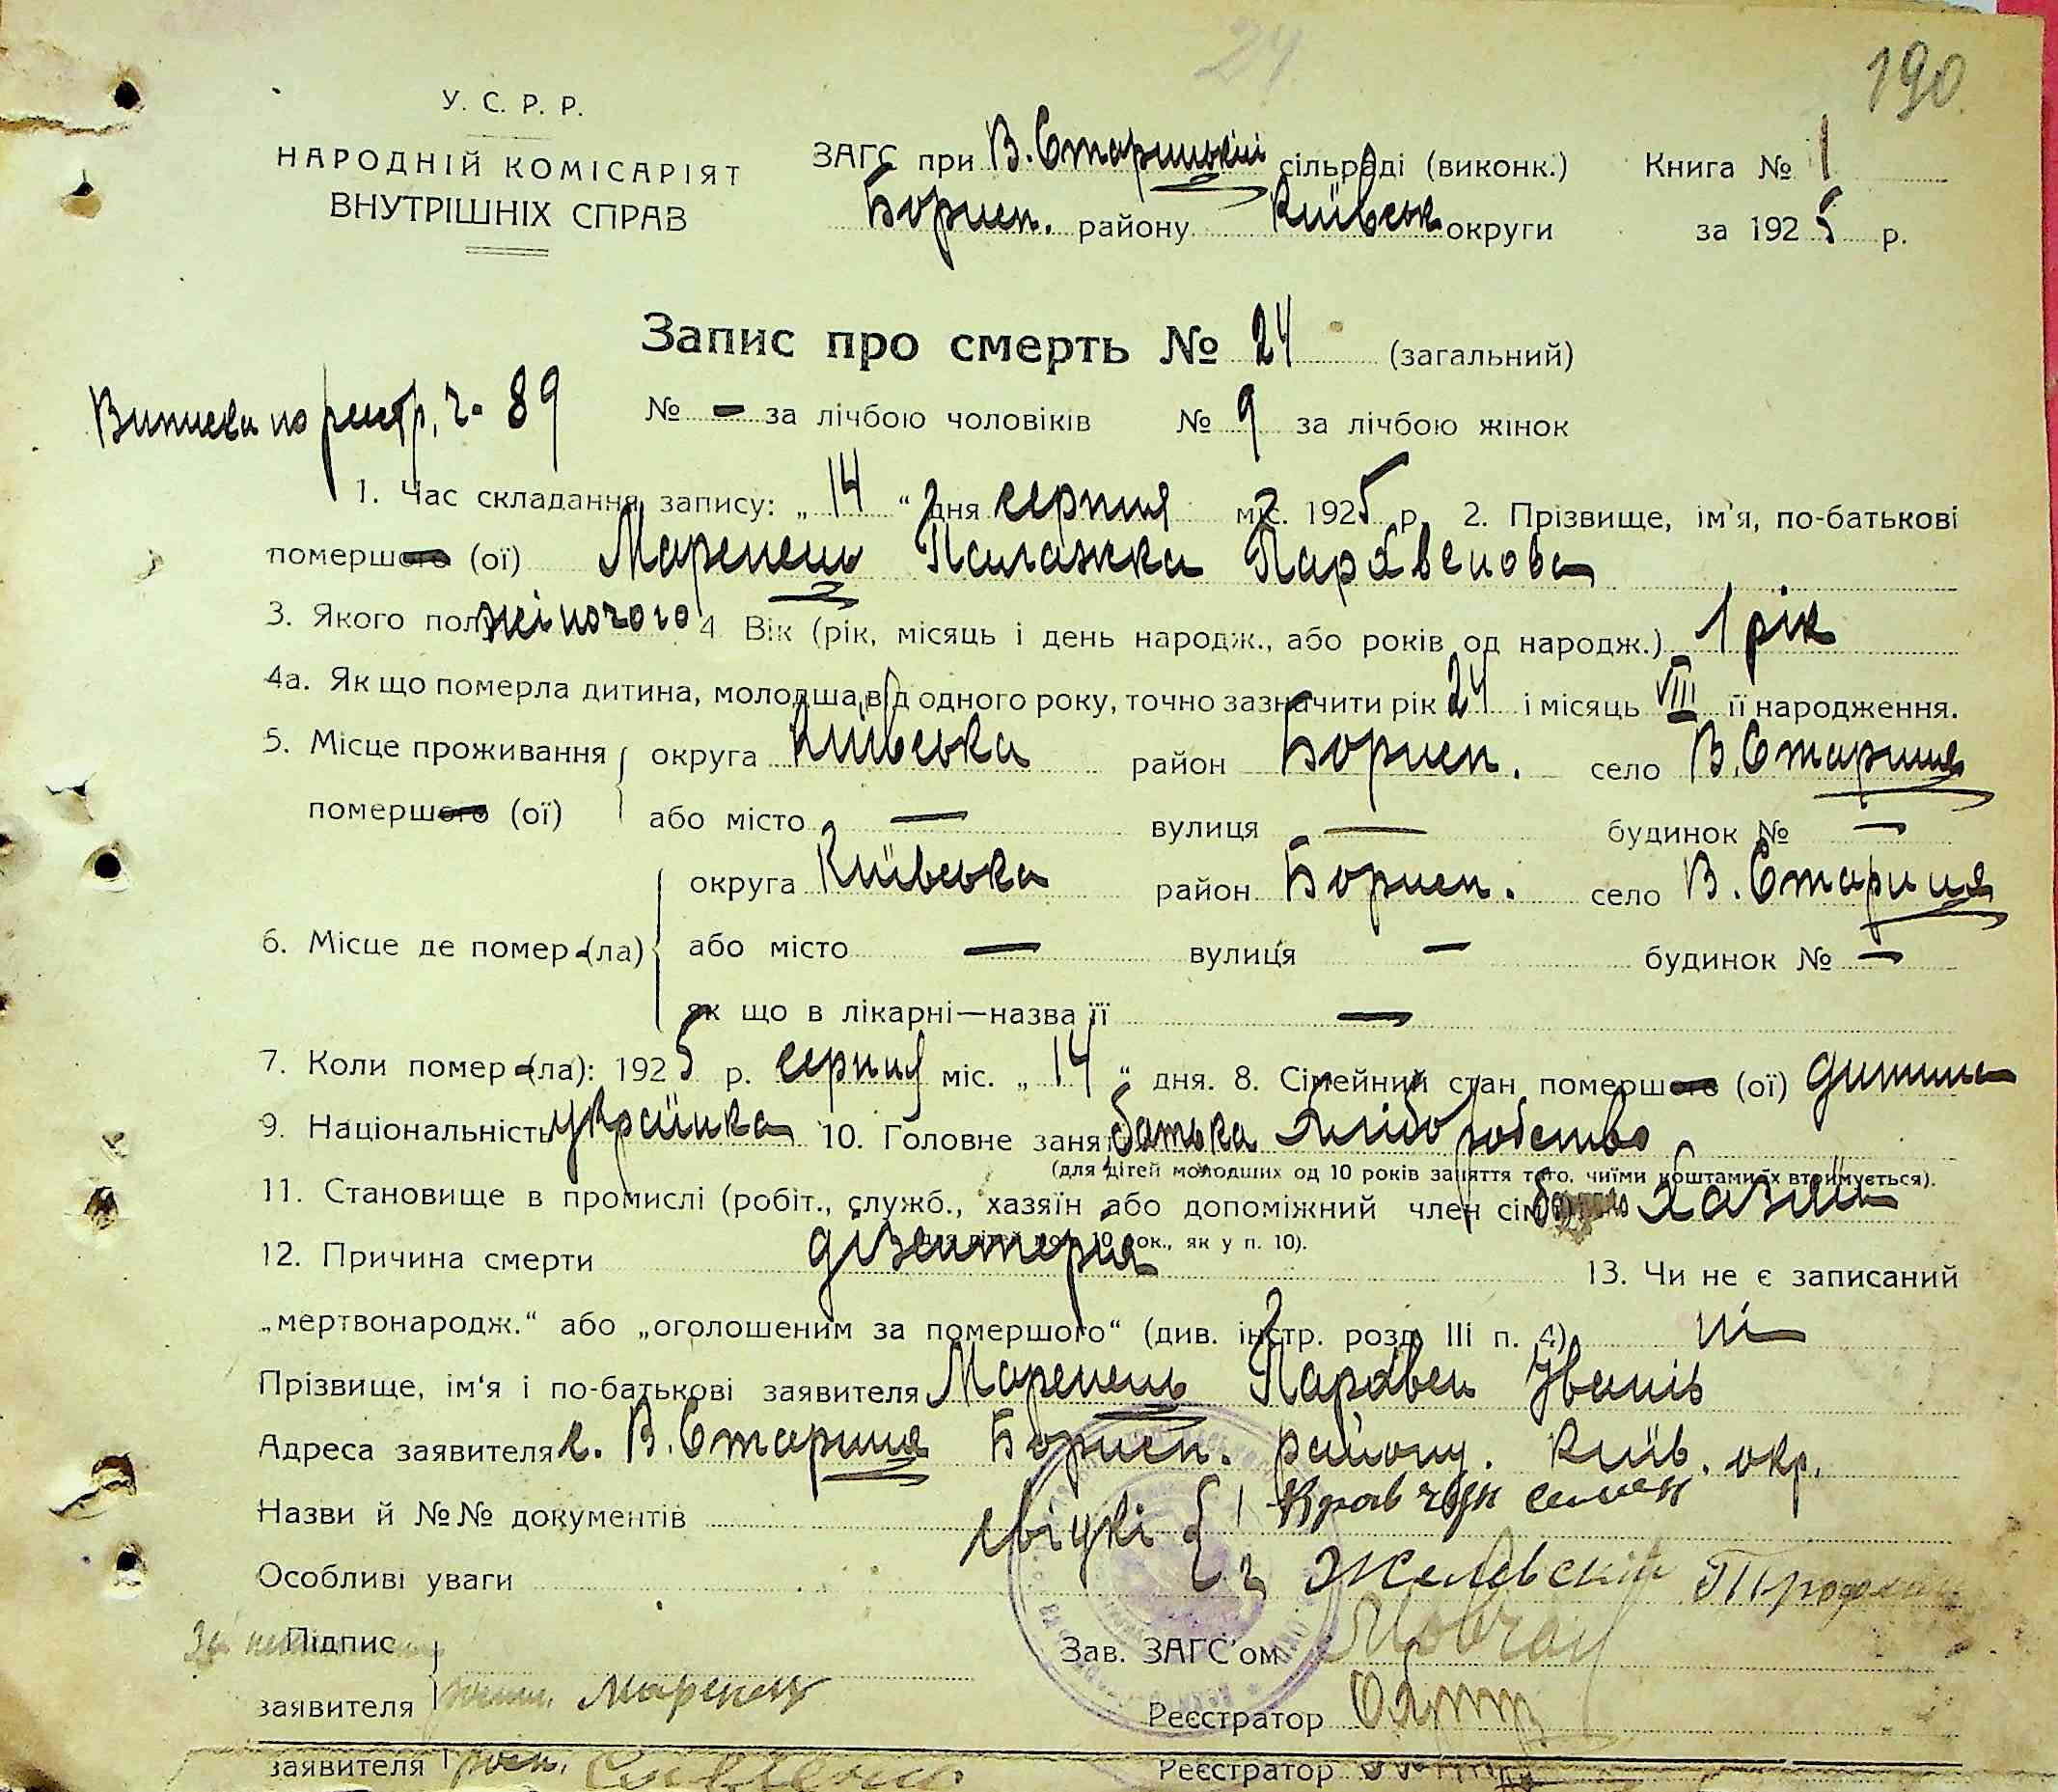 24
190
У. С. Р. Р.
НАРОДНІЙ КОМІСАРІЯТ
ВНУТРІШНІХ СПРАВ
ЗАГС при В. Старицькій сільраді (виконк.) Книга № 1
Борисп. району Київськ округи за 1925 р.
Запис про смерть № 24 (загальний)
Виписка по реєстр. ч. 89
№ — за лічбою чоловіків № 9 за лічбою жінок
1. Час складання запису: „ 14 “ дня серпня міс. 1925 р. 2. Прізвище, ім'я, по-батькові
помершого (ої) Маренець Палажка Парфвенова
3. Якого полу жіночого 4. Вік (рік, місяць і день народж., або років од народж.) 1 рік
4а. Як що померла дитина, молодша від одного року, точно зазначити рік 24 і місяць VIII її народження.
5. Місце проживання округа Київська район Борисп. село В. Стариця
помершого (ої) або місто — вулиця — будинок № —
округа Київська район Борисп. село В. Стариця
6. Місце де помер-(ла) або місто — вулиця — будинок № —
як що в лікарні—назва її —
7. Коли помер-(ла): 1925 р. серпня міс. „ 14 “ дня. 8. Сімейний стан помершого (ої) дитина
9. Національність українка 10. Головне заня батька хліборобство
(для дітей молодших од 10 років заняття того, чиїми коштами їх втримується).
11. Становище в промислі (робіт., служб., хазяїн або допоміжний член сім хазяїн
10 рок., як у п. 10).
12. Причина смерти дізентерія 13. Чи не є записаний
„мертвонародж.“ або „оголошеним за помершого“ (див. інстр. розд. III п. 4) ні
Прізвище, ім'я і по-батькові заявителя Маренець Парфвен Іванів
Адреса заявителя с. В. Стариця Борисп. району. Київ. окр.
Назви й №№ документів свідкі { 1 Кравчун Семен
Особливі уваги 2
Підпис Зав. ЗАГС'ом Мовчан
заявителя Маренец Реєстратор
заявителя Реєстратор